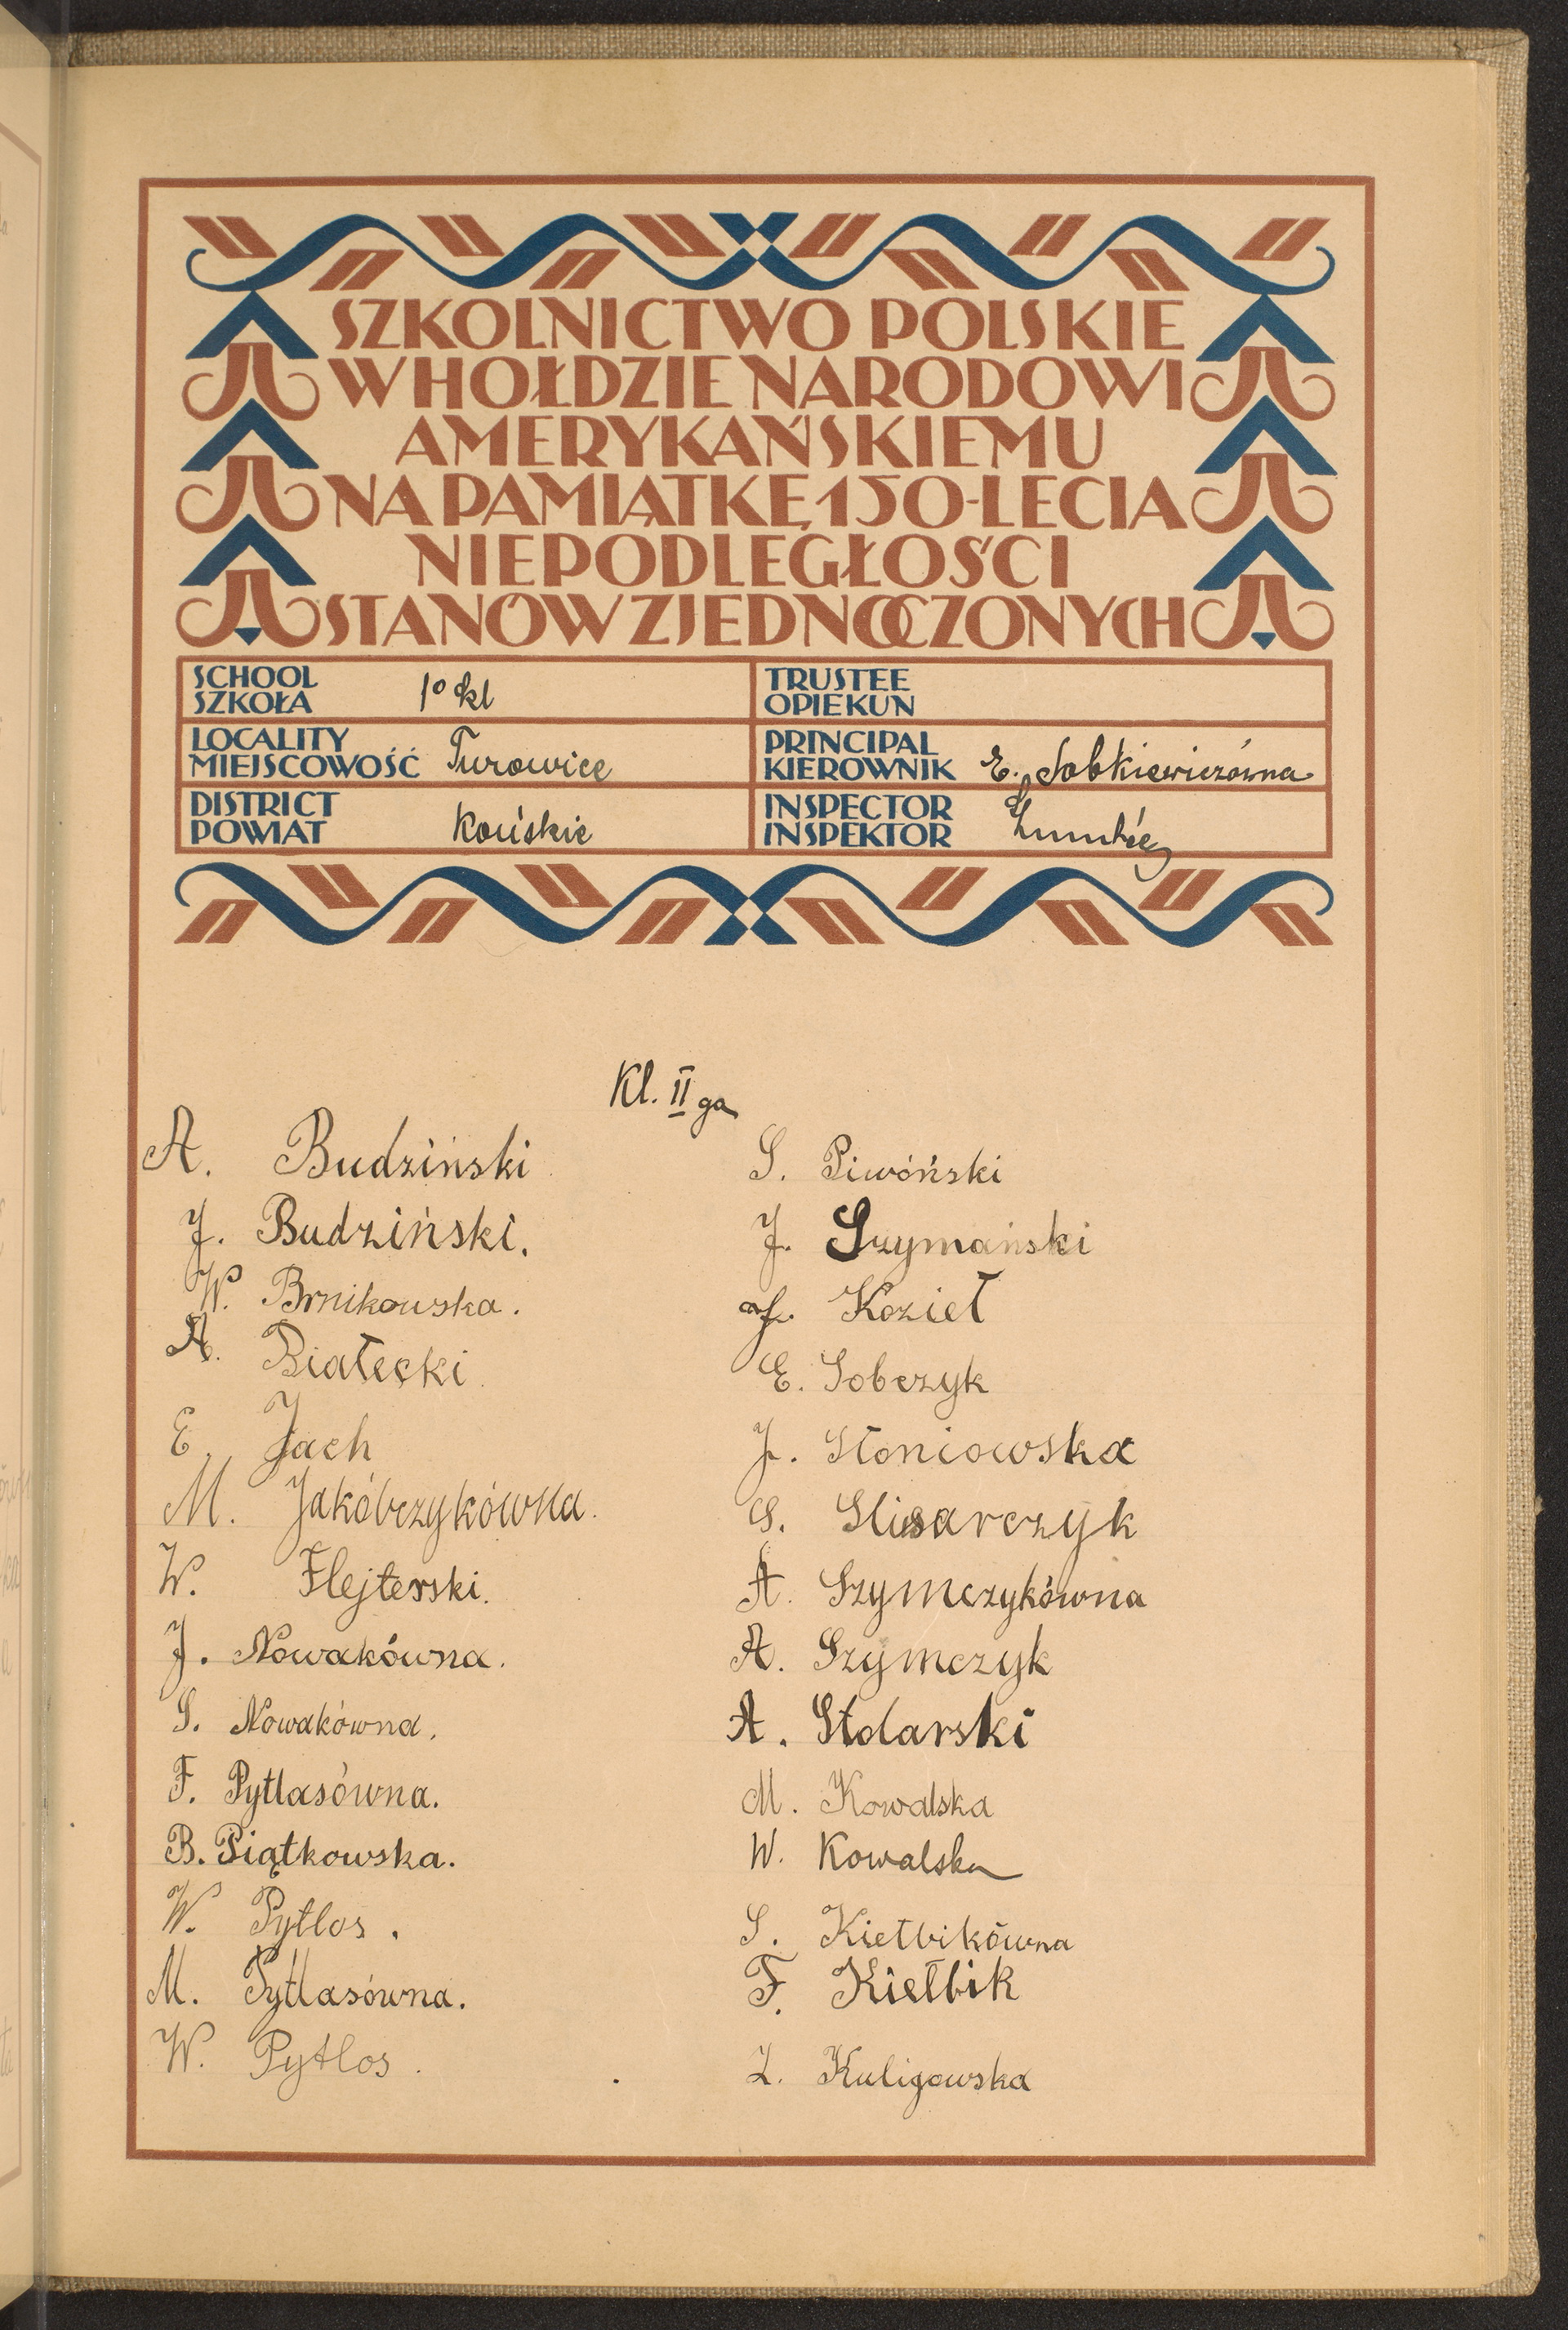 SZKOLNICTWO POLSKIE
W HOŁDZIE NARODOWI
AMERYKAŃSKIEMU
NA PAMIĄTKĘ 150-LECIA
NIEPODLEGŁOŚCI
STANÓW ZJEDNOCZONYCH
SCHOOL
SZKOŁA 1º kl
TRUSTEE
OPIEKUN
LOCALITY
MIEJSCOWOŚĆ Turowice
PRINCIPAL
KIEROWNIK E. Sobkiewiczówna
DISTRICT
POWIAT Końskie
INSPECTOR
INSPEKTOR
Kl. II ga
A. Budziński
J. Budziński.
W. Brnikowska.
A. Białecki.
E. Jach
M. Jakóbczykówna.
W. Flejterski.
J. Nowakówna.
S. Nowakówna.
F. Pytlasówna.
B. Piątkowska.
W. Pytlos.
M. Pytlasówna.
W. Pytlos.
S. Piwóński
J. Szymański
J. Kozieł
E. Sobczyk
J. Słoniowska
S. Slisarczyk
A. Szymczykówna
A. Szymczyk
A. Stolarski
M. Kowalska
W. Kowalska
S. Kiełbikówna
F. Kiełbik
Z. Kuligowska